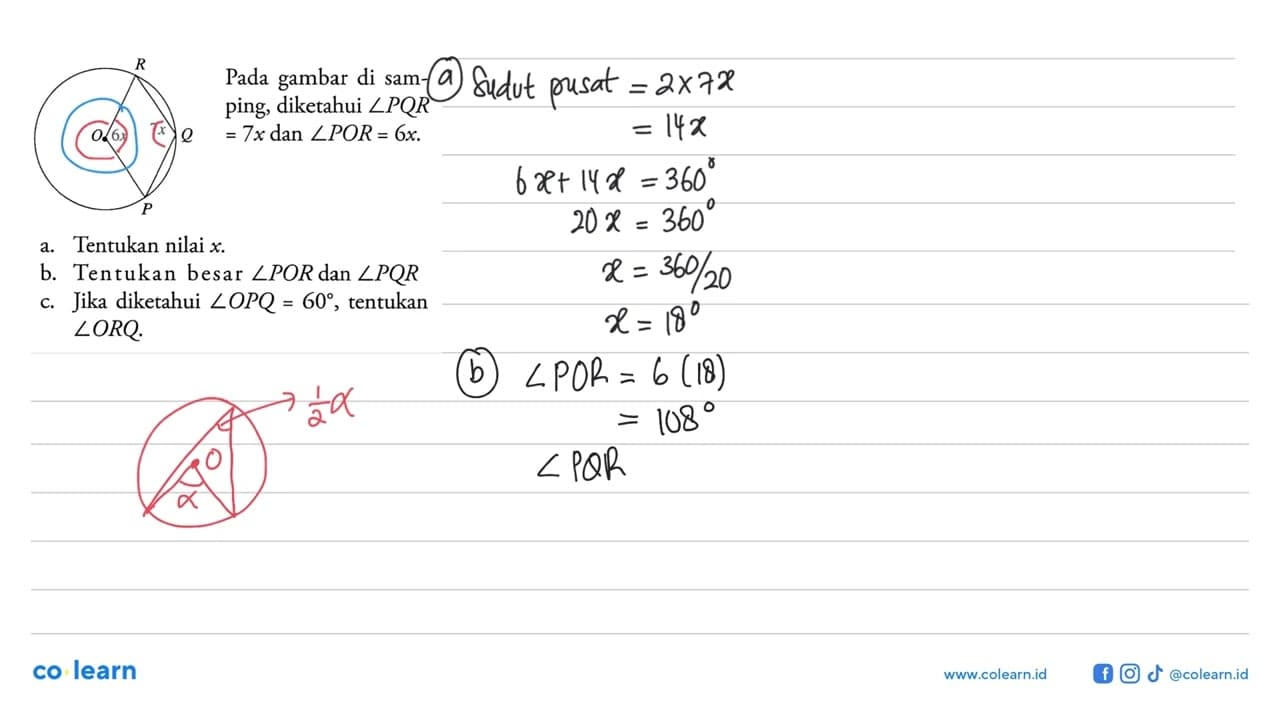 R
O
6x
7x
Q
P
Pada gambar di sam-
ping, diketahui ∠PQR
= 7x dan ∠POR = 6x.
a. Tentukan nilai x.
b. Tentukan besar ∠POR dan ∠PQR
c. Jika diketahui ∠OPQ = 60°, tentukan
∠ORQ.
O
α
1/2 α
a Sudut pusat = 2×7x
= 14x
6x+14x = 360°
20x = 360°
x = 360/20
x = 18°
b ∠POR = 6 (18)
= 108°
∠PQR
co learn
www.colearn.id
@colearn.id